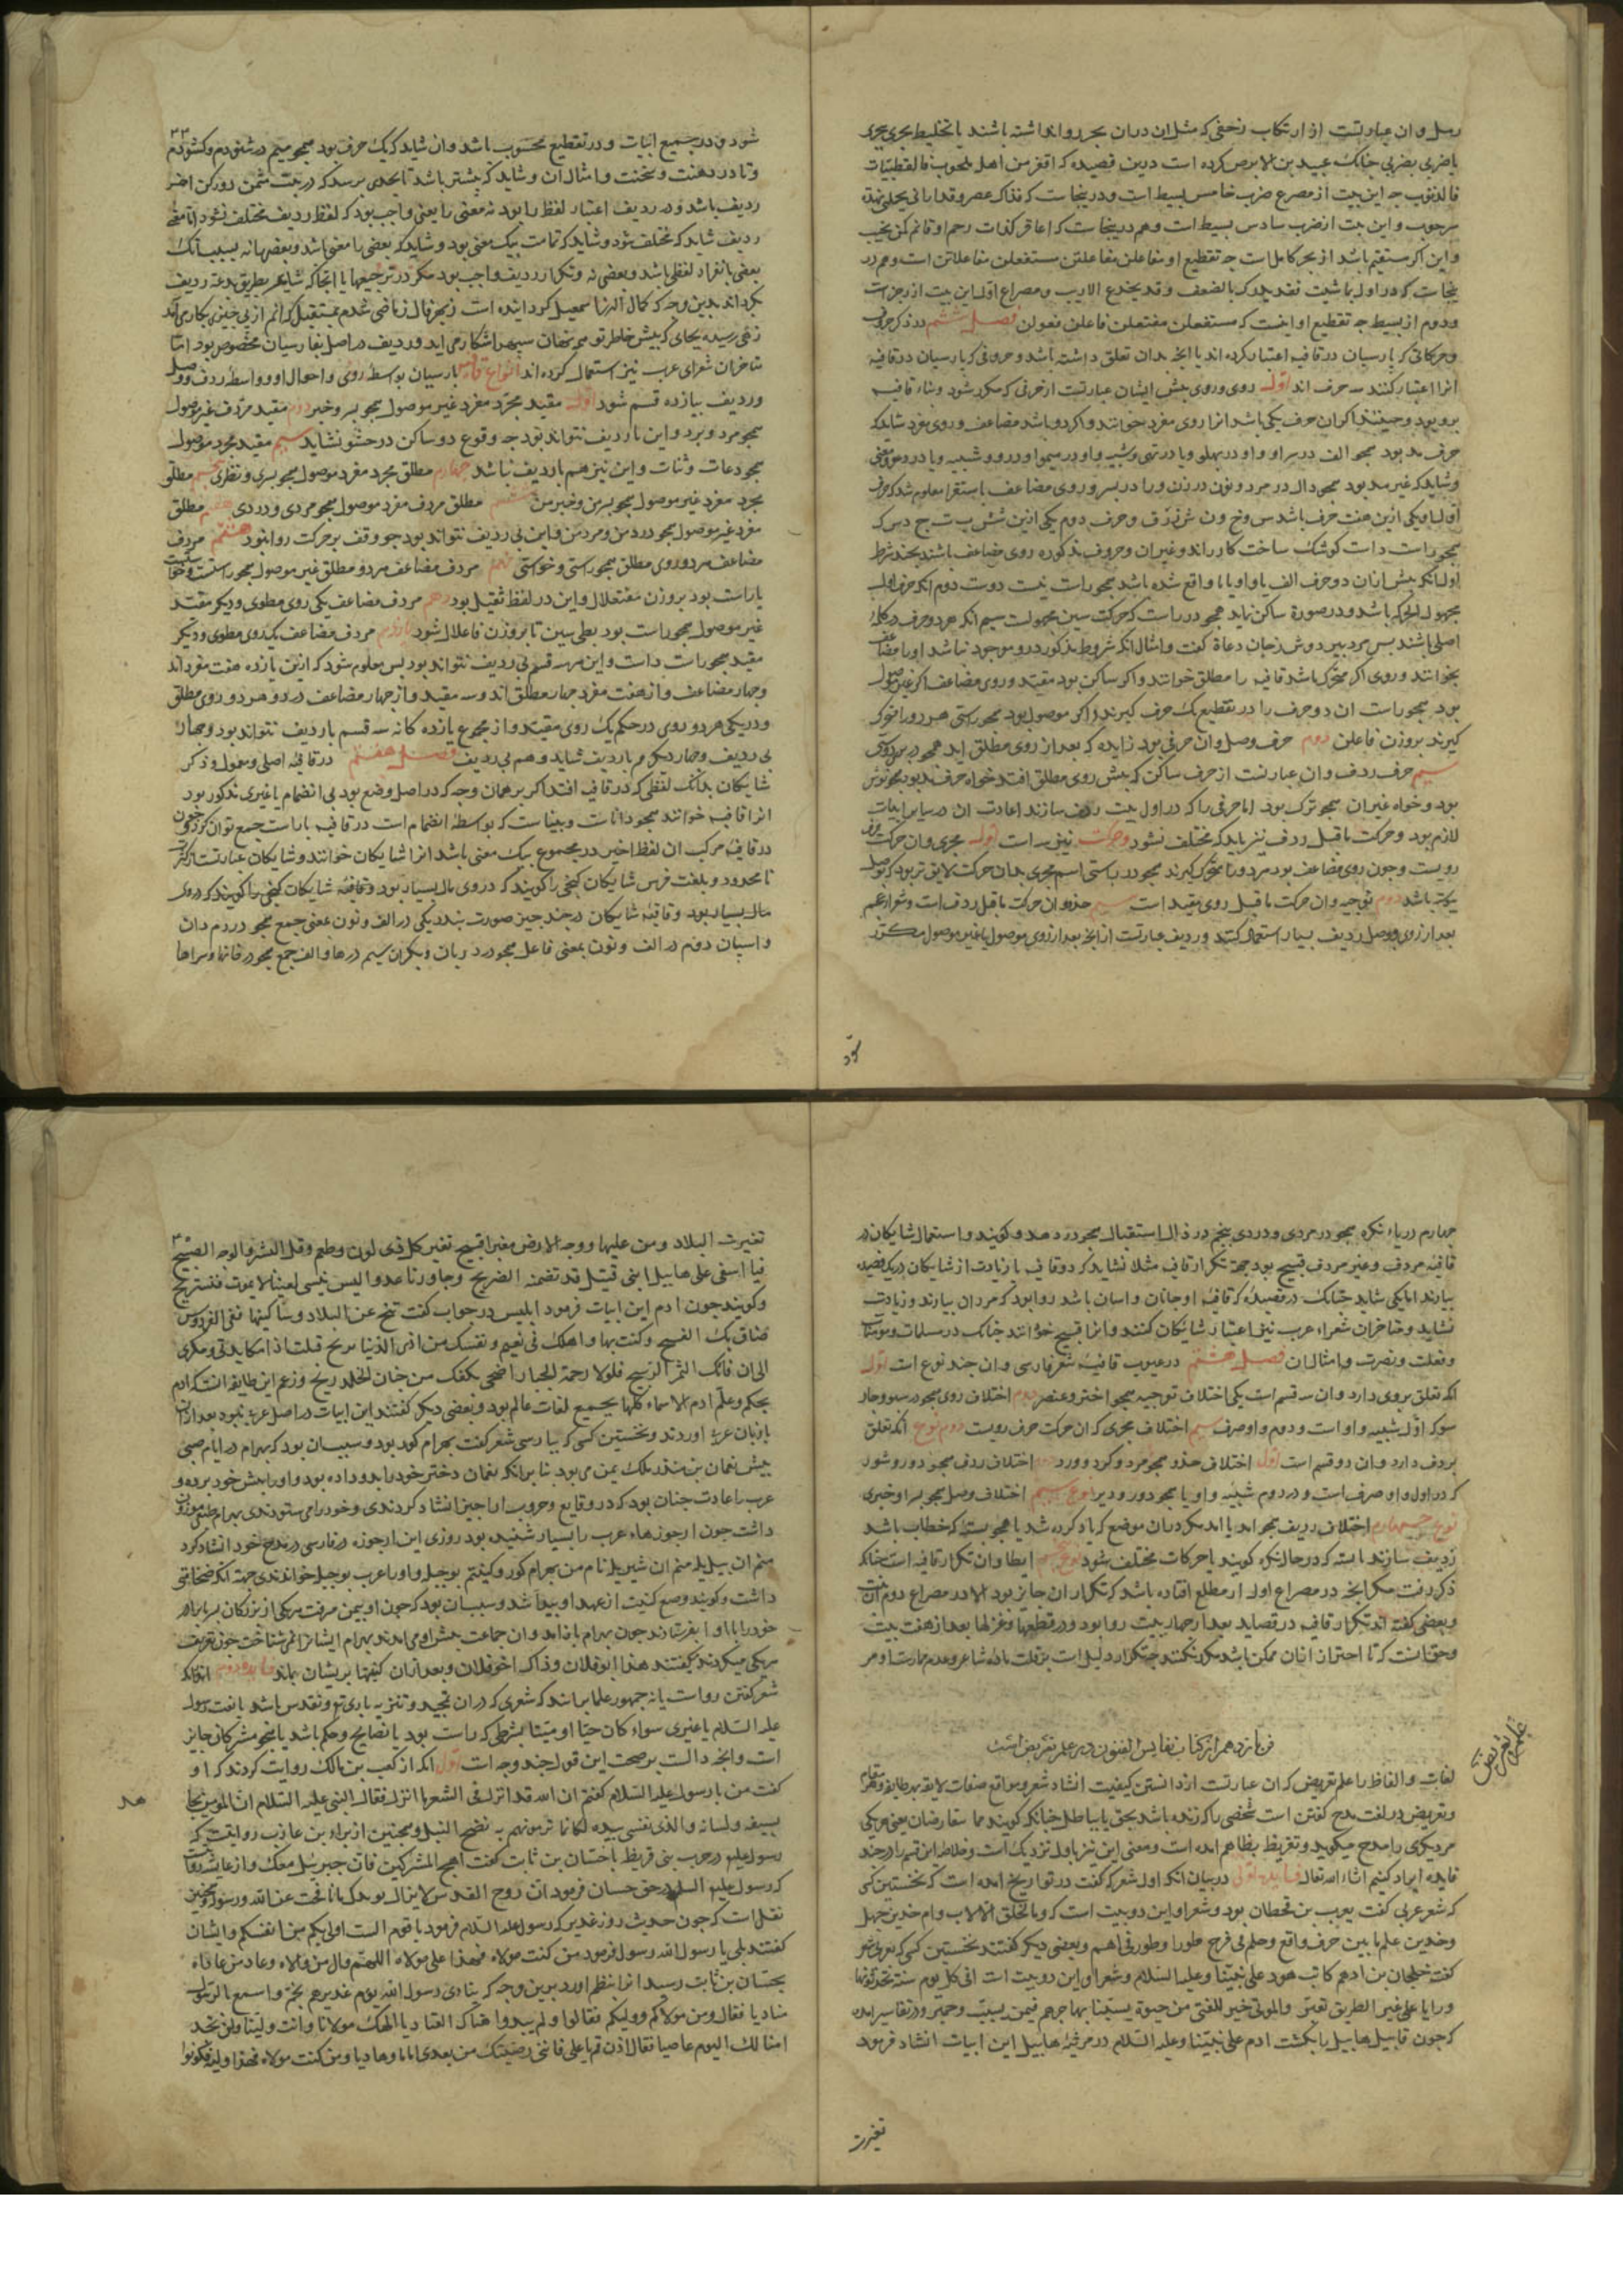 رمل و ان عبارتست از ارتکاب زحفی که مثل ان دران بحر روا نداشته باشند یا تخلیط بحری ببحری
یا ضربی بضربی چنانک عبید بن الابرص کرده است درین قصیده که اقفر من اهله ملحوب فالقطبیات
فالذنوب چه این بیت از مصرع ضرب خامس بسیط است و درینجاست که
سرحوب و این بیت از ضرب سادس بسیط است و هم درینجاست که اعاقر کذات رحم او غانم کمن یخیب
و این اگر مستقیم باشد از بحر کامل است چه تقطیع او متفاعلن متفاعلن مستفعلن متفاعلاتن است و هم در
ینجاست که در اول ما شیت فقد یدرک بالضعف و قد یخدع الاریب و مصراع اول این بیت از رجز است
و دوم از بسیط چه تقطیع او اینست که مستفعلن مفتعلن فاعلن فعولن فصل ششم در ذکر حروف
و حرکاتی که پارسیان در قافیه اعتبار کرده اند یا انچه بدان تعلق داشته باشد و حروفی که پارسیان در قافیه
انرا اعتبار کنند سه حرف اند اول روی و روی پیش ایشان عبارتست از حرفی که مکرر شود و بناء قافیه
برو بود و حینئذ اگر ان حرف یکی باشد انرا روی مفرد خوانند و اگر دو باشد مضاعف و روی مفرد شاید که
حرف مد بود همچو الف در سرا و واو در پهلو و یا در تهی
و شاید که غیر مد بود همچو دال در مرد و نون در زن و را در بسر و روی مضاعف باستقرا معلوم شد که حرف
اول او یکی ازین هفت حرف باشد س و خ و ن ش ز ف و حرف دوم یکی ازین شش ب ت ج د س ک
همچو راست داست کوشک ساخت کارد راند و غیر ان و حروف مذکوره روی مضاعف باشند بچند شرط
اول انکه پیش ازان دو حرف الف یا واو یا یا واقع شده باشد همچو راست نیست دوست دوم انکه حرف اول
اصلی باشند پس
بخوانند و روی اگر متحرک باشد قافیه را مطلق خوانند و اگر ساکن بود مقید و روی مضاعف اگر غیر موصول
بود همچو راست ان دو حرف را در تقطیع یک حرف گیرند و اگر موصول بود همچو راستی هر دو را متحرک
گیرند بر وزن فاعلن دوم حرف وصل و ان حرفی بود زایده که بعد از روی مطلق اید همچو
سیم حرف ردف و ان عبارتست از حرف ساکن که پیش روی مطلق افتد خواه حرف مد بود
بود و خواه غیر ان همچو ترک بود اما حرفی را که در اول بیت ردف سازند اعادت ان در سایر ابیات
لازم بود و حرکت ما قبل ردف نیز باید که مختلف نشود و حرکت نیز سه است اول مجری و ان حرکت حرف
رویست و چون روی مضاعف بود
یکتر باشد دوم توجیه و ان حرکت ما قبل روی مقید است سیم حذو و ان حرکت ما قبل ردف است و شعراء عجم
بعد از روی و وصل ردیف بسیار استعمال کنند و ردیف عبارتست از انچه بعد از روی موصول یا غیر موصول مکرر
شود
شود در جمیع ابیات و در تقطیع محسوب باشد و ان شاید که یک حرف بود همچو میم در شنودم و کشودم
و تا در دهنت و سخنت و امثال ان و شاید که بیشتر باشد تا بحدی برسد که در بیت مثمن دو رکن اخر
ردیف باشد و در ردیف اعتبار لفظ را بود نه معنی را یعنی واجب بود که لفظ ردیف مختلف نشود اما معنی
ردیف شاید که مختلف شود و شاید که تمامت بیک معنی بود و شاید که بعضی را معنی باشد و بعضی را نه بسبب انک
بعضی بانفراد لفظی باشد و بعضی نه و تکرار ردیف واجب بود مگر در ترجیعها یا انجا که شاعر بطریق بدعت ردیف
بگرداند بدین وجه که کمال الدین اسمعیل گردانیده است
ورزیده بجای که پیش خاطر تو و ردیف در اصل بپارسیان مخصوص بود اما
متاخران شعرای عرب نیز استعمال کرده اند انواع قافیه پارسیان بواسطه روی و احوال او و واسطه ردف و وصل
و ردیف بیازده قسم شود اول مقید مجرد مفرد غیر موصول همچو بسر و خبر دوم مقید مردف غیر موصول
همچو مرد و برد و این با ردیف نتواند بود چه وقوع دو ساکن در حشو نشاید سیم مقید مجرد موصول
همچو دعات و ثنات و این نیز هم با ردیف نباشد چهارم مطلق مجرد مفرد موصول همچو بسری و نظری پنجم مطلق
مجرد مفرد غیر موصول همچو بسر من و خبر من ششم مطلق مردف مفرد موصول همچو مردی و دردی هفتم مطلق
مفرد غیر موصول همچو درد من و مرد من و این بی ردیف نتواند بود چو وقف بر حرکت روا نبود هشتم مردف
مضاعف هر دو روی مطلق همچو راستی و خواستی نهم مردف مضاعف هر دو مطلق غیر موصول همچو راست و خواست
یا راست بود بر وزن مفتعلان و این در لفظ ثقیل بود دهم مردف مضاعف یکی روی مطوی و دیگر مقید
غیر موصول همچو راست بود بطی سین تا بر وزن فاعلان شود یازدهم مردف مضاعف یک روی مطوی و دیگر
مقید همچو راست داست و این هر سه قسم بی ردیف نتواند بود پس معلوم شود که ازین یازده هفت مفرد اند
و چهار مضاعف و از هفت مفرد چهار مطلق اند و سه مقید و از چهار مضاعف در دو هر دو روی مطلق
و در یکی هر دو روی در حکم یک روی مقید و از مجموع یازده گانه سه قسم با ردیف نتواند بود و چهار
بی ردیف و چهار دیگر هم با ردیف شاید و هم بی ردیف فصل هفتم در قافیه اصلی و معمول و ذکر
شایکان بدانک لفظی که در قافیه افتد اگر بر همان وجه که در اصل وضع بود بی انضمام با غیری مذکور بود
انرا قافیه خوانند
در قافیه مرکب ان لفظ اخیر در مجموع بیک معنی باشد انرا شایکان خوانند و شایکان عبارتست از کثرت
نا محدود و بلغت فرس شایکان گنجی را گویند که در وی مال بسیار بود و قافیه شایکان
مال بسیار بود و قافیه شایکان در چند چیز صورت بندد یکی در الف و نون بمعنی جمع همچو مردمان
و اسپان دوم در الف و نون بمعنی فاعل همچو سیم در ها و الف جمع همچو در خانها و سراها
چهارم در یاء نکره همچو در مردی و دردی پنجم در ذال استقبال همچو در دهد و گوید و استعمال شایکان در
قافیه مردف و غیر مردف قبیح بود جهت تکرار قافیه مثلا نشاید که دو قافیه یا زیادت از شایکان در یک قصیده
بیارند اما یکی شاید چنانک در قصیده که قافیه او جانان و اسان باشد روا بود که مردان بیارند و زیادت
نشاید و متاخران شعراء عرب نیز اعتبار شایکان کنند و انرا قبیح خوانند چنانک در مسلمات و مومنات
و فعلت و نصرت و امثال ان فصل هشتم در عیوب قافیه شعر فارسی و ان چند نوع است اول
انکه تعلق بروی دارد و ان سه قسم است یکی اختلاف توجیه همچو اختر و عنصر دوم اختلاف روی
اول شبیه واو است و دوم واو صرف سیم اختلاف مجری که ان حرکت حرف رویست دوم نوع انکه تعلق
بردف دارد و ان دو قسم است اول اختلاف حذو همچو مرد و کرد و ورد دوم اختلاف ردف همچو دور و شور
که در اول واو صرف است و در دوم شبیه واو یا همچو دور و دیر نوع سیم اختلاف وصل همچو پسر او خبری
نوع چهارم اختلاف ردیف
ردیف سازند نوع پنجم ایطا و ان تکرار قافیه است چنانکه
ذکر رفت مگر انچه در مصراع اول از مطلع افتاده باشد که تکرار ان جایز بود الا در مصراع دوم ان بیت
و بعضی گفته اند تکرار قافیه در قصاید بعد از چهارده بیت روا بود و در قطعها و غزلها بعد از هفت بیت
و حق انست که تا احتراز ازان ممکن باشد مکرر نکنند چه تکرار دلیل است بر قلت ماده شاعر و عدم ممارست او مر
فن یازدهم از کتاب نفایس الفنون در علم تقریض است
علم تقریض
لغات و الفاظ را علم تقریض که ان عبارتست از دانستن کیفیت انشاد شعر و مواقع صفات لایقه بهر طایفه و هر مقام
و تقریض در لغت مدح گفتن است شخصی را که زنده باشد بحق یا بباطل چنانکه گویند هما یتقارضان یعنی هر یکی
مر دیگری را مدح میگوید و تقریظ بظا هم امده است و معنی این نیز باول نزدیک است و خلاصه این قسم را در چند
فایده ایراد کنیم انشاء الله تعالی فایده اولی در بیان انکه اول شعر که گفت در تواریخ امده است که نخستین کسی
که شعر عربی گفت یعرب بن قحطان بود و شعر او این دو بیت است
و بعضی دیگر گفتند نخستین کسی که بعربی شعر
گفت خلجان بن ادهم کاتب هود علی نبینا و علیه السلام و شعر او این دو بیت است افی کل یوم
و رایا علی غیر الطریق و در تفاسیر امده
که چون قابیل هابیل را بکشت ادم علی نبینا و علیه السلام در مرثیه هابیل این ابیات انشاد فرمود
تغیرت
تغیرت البلاد و من علیها و وجه الارض مغبر قبیح تغیر کل ذی لون و طعم و قل البشر فی الوجه الصبیح
فیا اسفی علی هابیل ابنی قتیل قد تضمنه الضریح و جاورنا عدو الیس ینسی لعینا لا یموت فنستریح
و گویند چون ادم این ابیات فرمود ابلیس در جواب گفت تنح عن البلاد و ساکنیها ففی الفردوس
ضاق بک الفسیح و کنت بها و اهلک فی نعیم و نفسک من اذی الدنیا مریح فلست اذا مکایدتی و مکری
الی ان فاتک الثمر الربیح فلولا رحمة الجبار اضحی بکفک من جنان الخلد ریح و زعم این طایفه انست که ادم
بحکم و علم ادم الاسماء کلها بجمیع لغات عالم بود و بعضی دیگر گفتند این ابیات در اصل عربی نبود بعد از ان
بزبان عربی اوردند و نخستین کسی که بپارسی شعر گفت بهرام گور بود و سبب ان بود که بهرام در ایام صبی
پیش نعمان بن منذر ملک یمن می بود بنا برانکه نعمان دختر خود را بدو داده بود و او را پیش خود برده و
عرب را عادت چنان بود که در وقایع و حروب اراجیز انشاد کردندی و خود را می ستودندی بهرام طبعی موزون
داشت چون ارجوزهاء عرب را بسیار شنیده بود روزی این ارجوزه در فارسی در مدح خود انشاد کرد
منم ان پیل یله منم ان شیر یله نام من بهرام گور و کنیتم بوجبله و او را عرب بوجبله خواندندی جهت انکه ضخامتی
داشت و گویند وضع کنیت از عهد او پیدا شد و سبب ان بود که چون او بیمن میرفت هر یکی از بزرگان
خود را با او بفرستادند چون بهرام باز امد و ان جماعت پیش او می امدند بهرام ایشانرا نمی شناخت چون تعریف
هر یکی میکردند میگفتند هذا ابو فلان و ذاک اخو فلان و بعد ازان کنیتها بریشان بماند فایده دوم انکه
شعر گفتن رواست یا نه جمهور علما برانند که شعری که دران تمجید و تنزیه باری تع و تقدس باشد یا نعت رسول
علیه السلام یا غیری سواء کان حیا او میتا بشرطی که راست بود یا نصایح و حکم باشد یا هجو مشرکان جایز
است و انچه دالست بر صحت این قول چند وجه است اول انکه از کعب بن مالک روایت کردند که او
گفت من با رسول علیه السلام گفتم ان الله قد انزل فی الشعر ما انزل فقال النبی علیه السلام ان المومن یجاهد
بسیفه و لسانه والذی نفسی بیده لکانما ترمونهم به نضح النبل و همچنین از براء بن عازب روایتست که
رسول علیه در حرب بنی قریظه با حسان بن ثابت گفت اهج المشرکین فان جبرئیل معک و از عایشه روایت
که رسول علیه السلم در حق حسان فرمود ان روح القدس لا یزال یویدک ما نافحت عن الله و رسوله و همچنین
نقل است که چون حدیث روز غدیر که رسول علیه السلام فرمود یا قوم الست اولی بکم من انفسکم و ایشان
گفتند بلی یا رسول الله رسول فرمود من کنت مولاه فهذا علی مولاه اللهم وال من والاه و عاد من عاداه
بحسان بن ثابت رسید انرا بنظم اورد برین وجه که ینادی رسول الله یوم غدیرهم بخم و اسمع بالرسول
منادیا فقال و من مولاکم و ولیکم فقالوا و لم یبدوا هناک التعادیا الهک مولانا و انت ولینا و لن تجد
امنا لک الیوم عاصیا فقال اذن قم یا علی فاننی رضیتک من بعدی اماما و هادیا و من کنت مولاه فهذا ولیه فکونوا